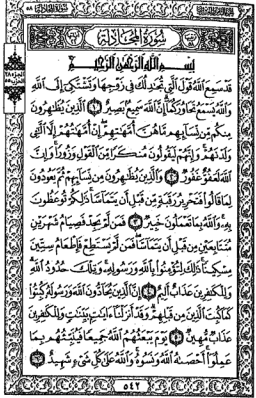 سُورَةُ المُجَادلَة
بِسْمِ ٱللَّهِ ٱلرَّحْمَٰنِ ٱلرَّحِيمِ
قَدْ سَمِعَ ٱللَّهُ قَوْلَ ٱلَّتِى تُجَٰدِلُكَ فِى زَوْجِهَا وَتَشْتَكِىٓ إِلَى ٱللَّهِ
وَٱللَّهُ يَسْمَعُ تَحَاوُرَكُمَآ إِنَّ ٱللَّهَ سَمِيعٌۢ بَصِيرٌ ١ ٱلَّذِينَ يُظَٰهِرُونَ
مِنكُم مِّن نِّسَآئِهِم مَّا هُنَّ أُمَّهَٰتِهِمْ إِنْ أُمَّهَٰتُهُمْ إِلَّا ٱلَّٰٓـِٔى
وَلَدْنَهُمْ وَإِنَّهُمْ لَيَقُولُونَ مُنكَرًا مِّنَ ٱلْقَوْلِ وَزُورًا وَإِنَّ
ٱللَّهَ لَعَفُوٌّ غَفُورٌ ٢ وَٱلَّذِينَ يُظَٰهِرُونَ مِن نِّسَآئِهِمْ ثُمَّ يَعُودُونَ
لِمَا قَالُوا۟ فَتَحْرِيرُ رَقَبَةٍ مِّن قَبْلِ أَن يَتَمَآسَّا ذَٰلِكُمْ تُوعَظُونَ
بِهِۦ وَٱللَّهُ بِمَا تَعْمَلُونَ خَبِيرٌ ٣ فَمَن لَّمْ يَجِدْ فَصِيَامُ شَهْرَيْنِ
مُتَتَابِعَيْنِ مِن قَبْلِ أَن يَتَمَآسَّا فَمَن لَّمْ يَسْتَطِعْ فَإِطْعَامُ سِتِّينَ
مِسْكِينًا ذَٰلِكَ لِتُؤْمِنُوا۟ بِٱللَّهِ وَرَسُولِهِۦ وَتِلْكَ حُدُودُ ٱللَّهِ
وَلِلْكَٰفِرِينَ عَذَابٌ أَلِيمٌ ٤ إِنَّ ٱلَّذِينَ يُحَآدُّونَ ٱللَّهَ وَرَسُولَهُۥ كُبِتُوا۟
كَمَا كُبِتَ ٱلَّذِينَ مِن قَبْلِهِمْ وَقَدْ أَنزَلْنَآ ءَايَٰتٍۭ بَيِّنَٰتٍ وَلِلْكَٰفِرِينَ
عَذَابٌ مُّهِينٌ ٥ يَوْمَ يَبْعَثُهُمُ ٱللَّهُ جَمِيعًا فَيُنَبِّئُهُم بِمَا
عَمِلُوٓا۟ أَحْصَىٰهُ ٱللَّهُ وَنَسُوهُ وَٱللَّهُ عَلَىٰ كُلِّ شَىْءٍ شَهِيدٌ ٦
٥٤٢